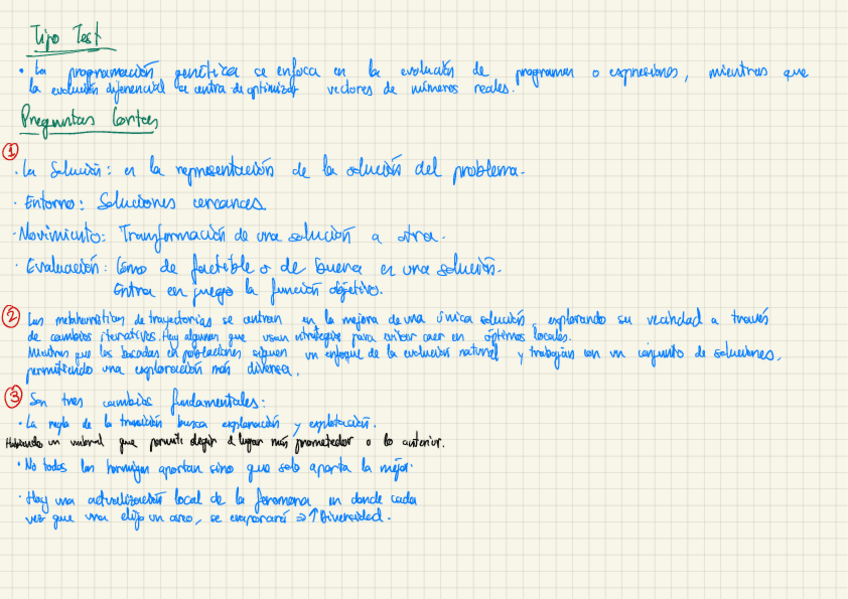 Tipo Test
• La programación genética se enfoca en la evolución de programas o expresiones, mientras que
la evolución diferencial se centra de optimizar vectores de números reales.
Preguntas Cortas
1
· La Solución: es la representación de la solución del problema.
· Entorno: Soluciones cercanas.
· Movimiento: Transformación de una solución a otra.
· Evaluación: Cómo de factible o de buena es una solución.
Entra en juego la función objetivo.
2 Las metaheurísticas de trayectorias se centran en la mejora de una única solución, explorando su vecindad a través
de cambios iterativos. Hay algunas que usan estrategias para evitar caer en óptimos locales.
Mientras que las basadas en poblaciones siguen un enfoque de la evolución natural y trabajan con un conjunto de soluciones,
permitiendo una exploración más diversa.
3 Son tres cambios fundamentales:
· La regla de la transición busca exploración y explotación.
un umbral que permite elegir el lugar más prometedor o lo anterior.
· No todas las hormigas aportan sino que solo aporta la mejor.
· Hay una actualización local de la feromona en donde cada
vez que una elija un arco, se evaporará ⇒ ↑ Diversidad.